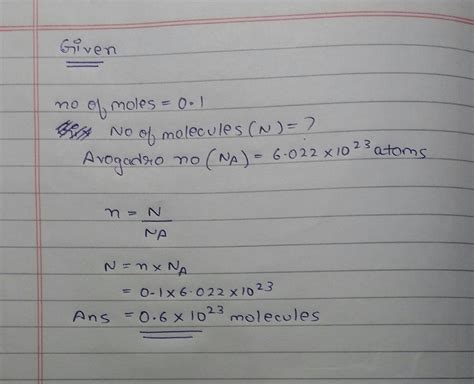 Given
no of moles = 0.1
No of molecules (N) = ?
Avogadro no (NA) = 6.022 × 10²³ atoms
n = N
NA
N = n × NA
= 0.1 × 6.022 × 10²³
Ans = 0.6 × 10²³ molecules